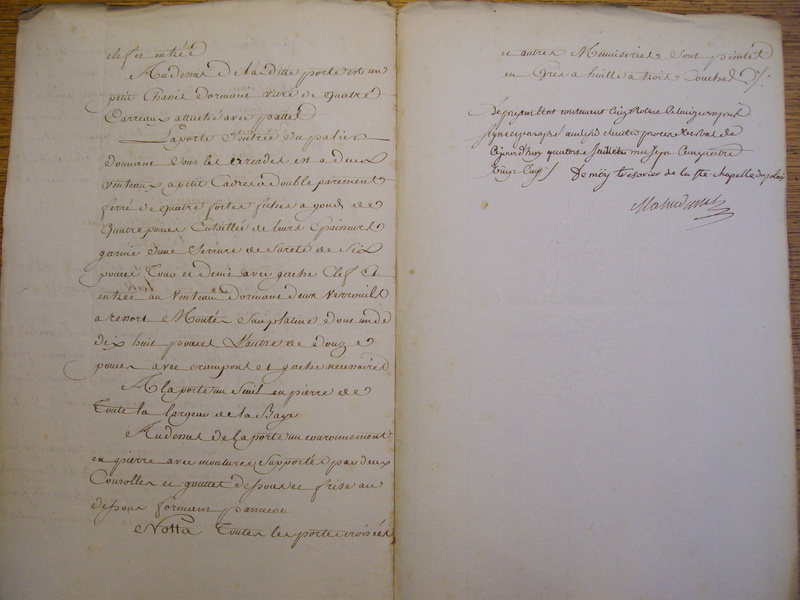 clef et entrée
Audessus de laditte porte est un
petit Chasis dormant vitré de quatre
Carreaux attaché avec pattes
La porte d'entrée du palier
donnant sous les arcades est a deux
venteaux a petit Cadre a double parement
ferré de quatre fortes fiches a gonds de
quatre pouces Entaillée de leurs Epaisseurs
garnie d'une Serrure de sureté de Six
pouces Tour et demi avec gache Clef et
entrée au venteau dormant deux verrouils
a ressort Montés Sur platine dont un de
dix huit pouces L'autre de douze
pouces avec crampons et gache necessaires
A la porte un Seuil en pierre de
Toute la largeur de la Baye
Audessus de la porte un couronnement
en pierre avec moulures Supportés par deux
Consolles et gouttes dessous et frise au
dessous formant panneau
Notta Toutes les portes croisées
et autres Menuiseries Sont peintes
en Gris a huille a trois Couches
Le present contenant Cinq Rolles
signé et paraphé au desir de notre procès verbal de
cejourd'huy quatorze Juillet mil Sept Cens quatre
vingt Cinq Demoy tresorier de la Ste Chapelle du palais